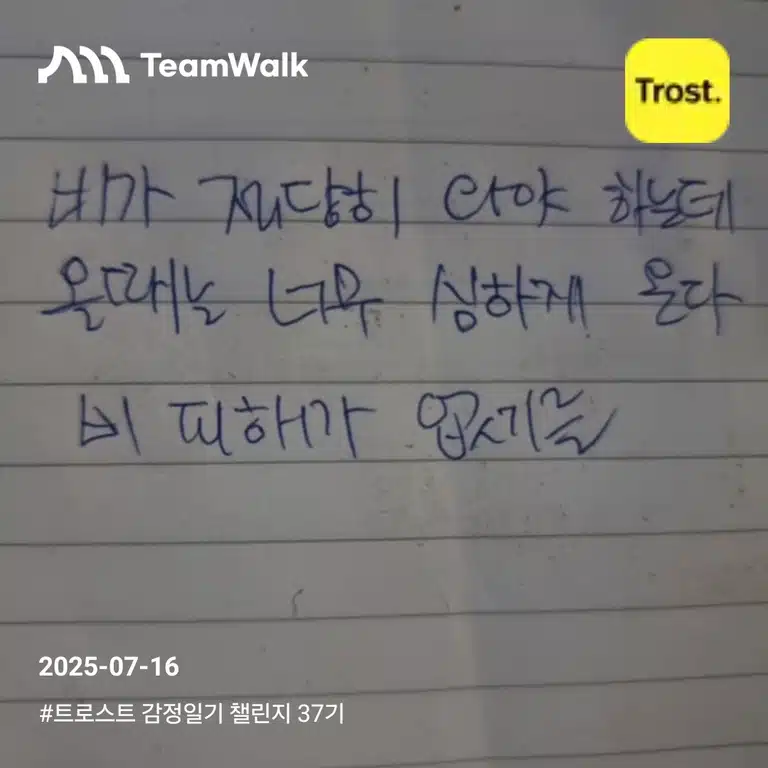 TeamWalk
Trost.
비가 적당히 와야 하는데
올때는 너무 심하게 온다
비 피해가 없기를
2025-07-16
#트로스트 감정일기 챌린지 37기